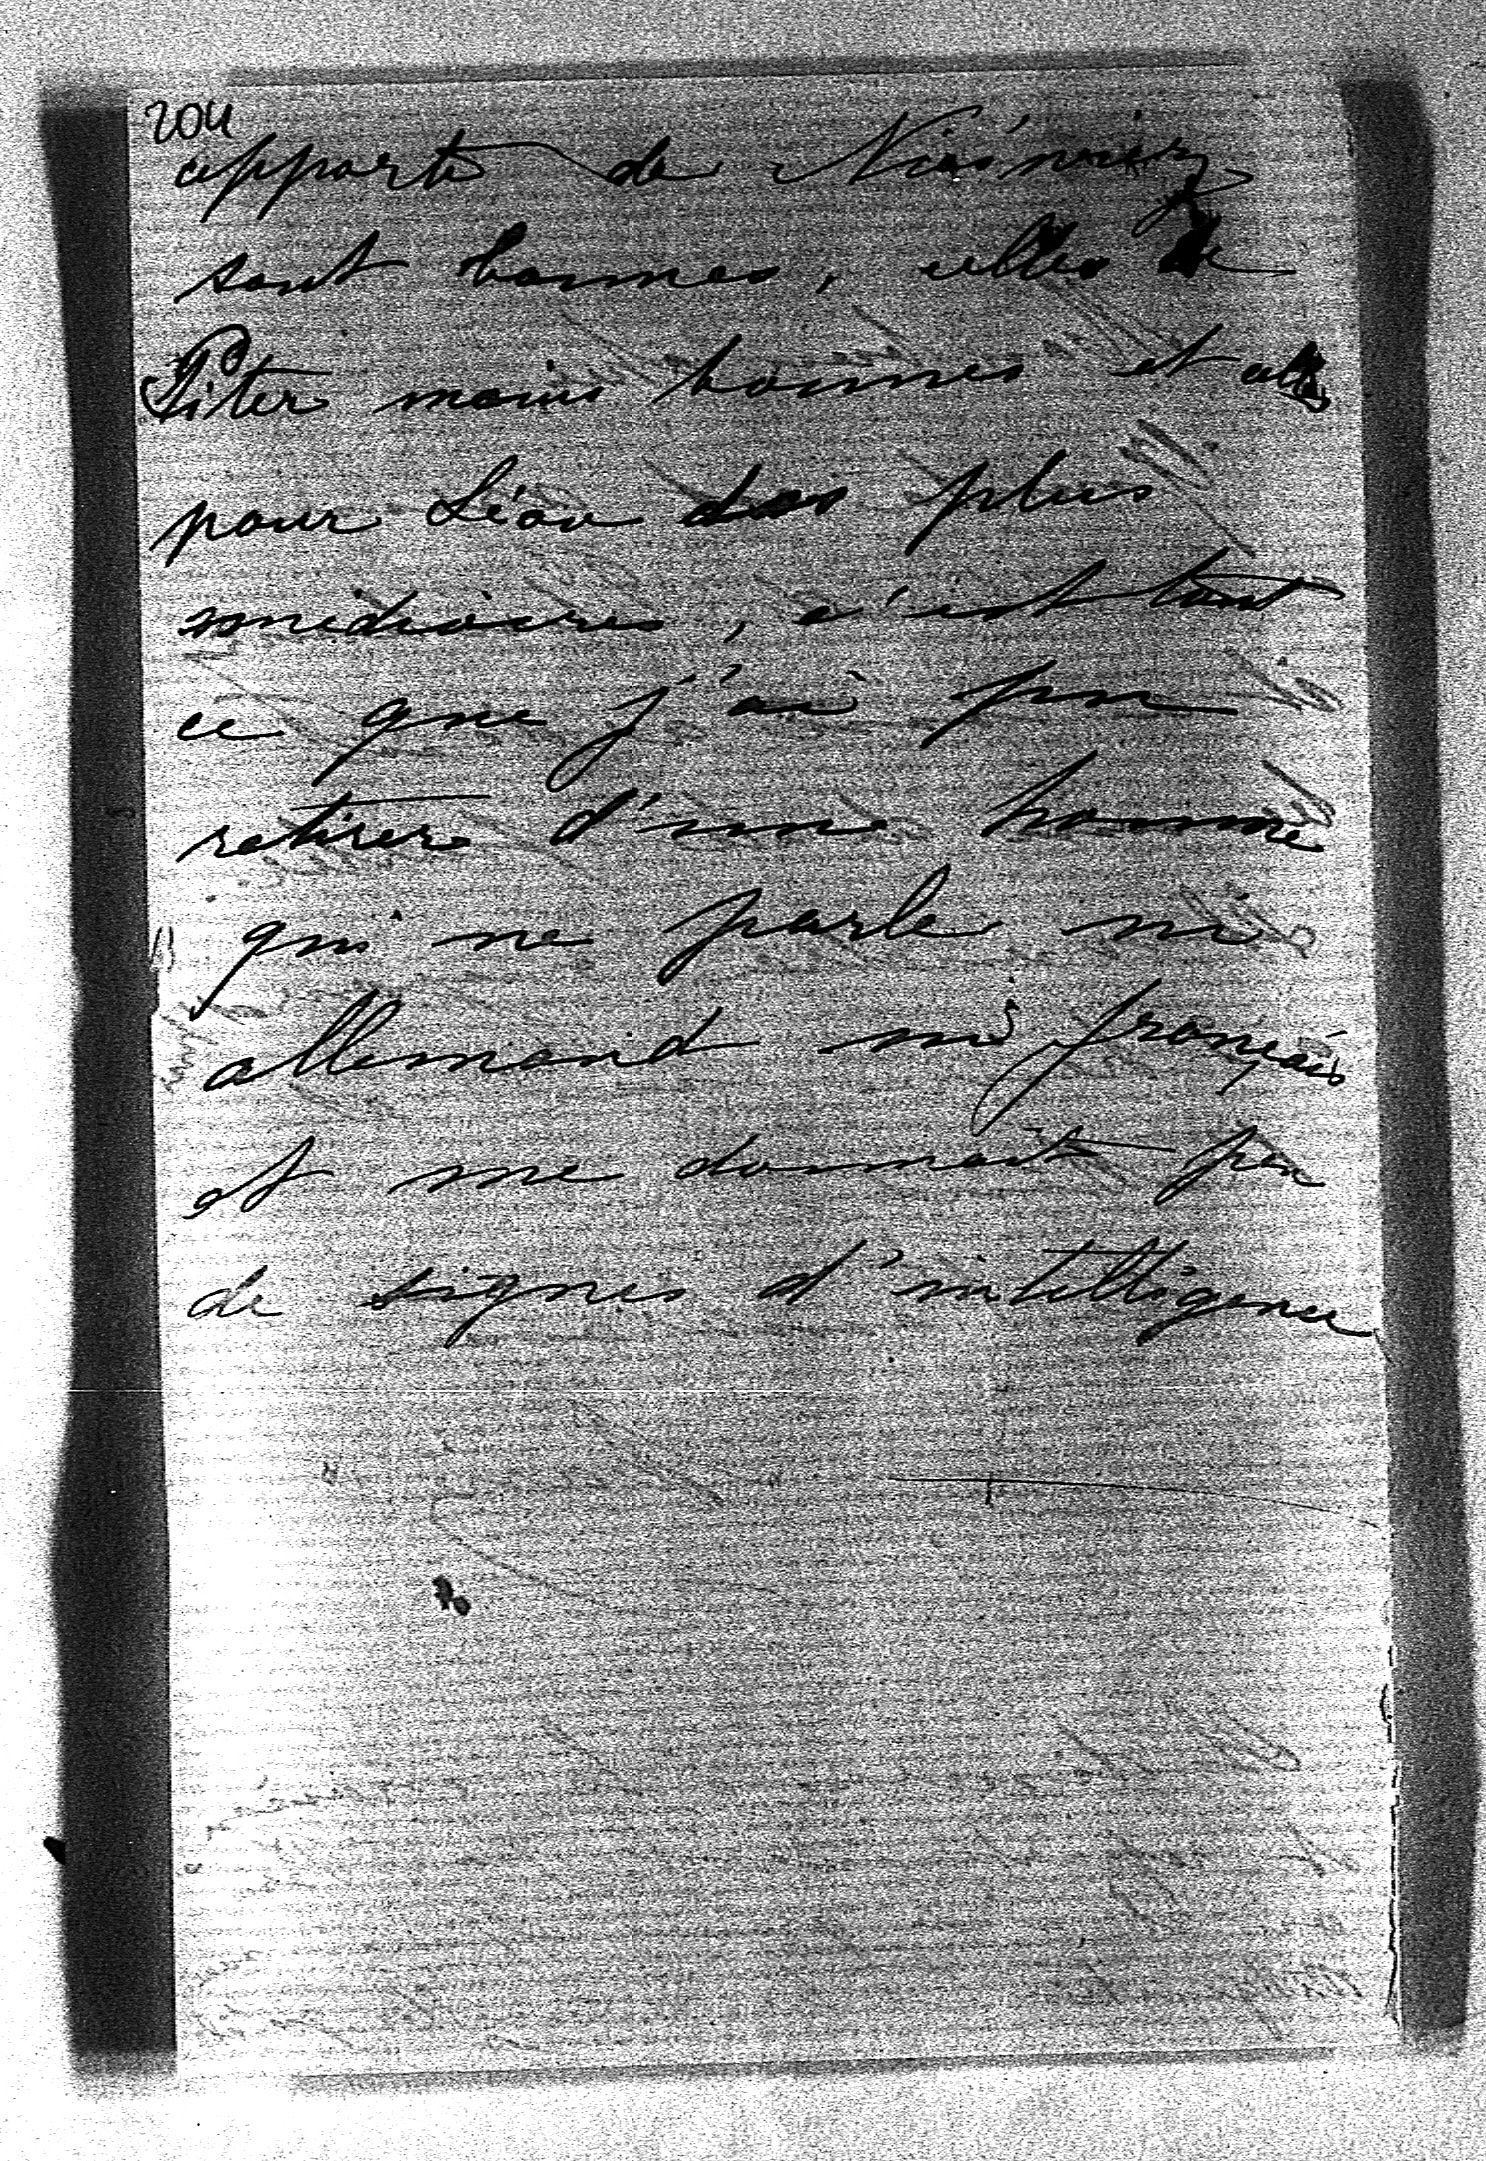 204
apporte de Nieśwież
sont bonnes, celles de
Piter moins bonnes et
pour Léon des plus
médiocres, c'est tout
ce que j'ai pu
retirer d'une homme
qui ne parle ni
allemand ni français
et me donnait peu
de signes d'intelligence